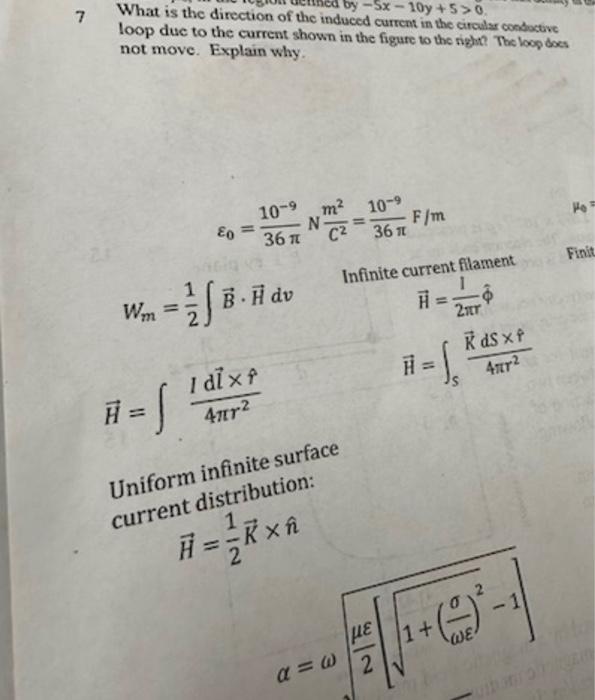 defined by −5x − 10y + 5 > 0.
7 What is the direction of the induced current in the circular conductive
loop due to the current shown in the figure to the right? The loop does
not move. Explain why.
ε₀ = 10⁻⁹/36 π N m²/C² = 10⁻⁹/36 π F/m
μ₀ =
W_m = 1/2 ∫ B⃗ · H⃗ dv
Infinite current filament
H⃗ = I/2πr φ̂
Finit
H⃗ = ∫ I dl⃗ × r̂/4πr²
H⃗ = ∫_S K⃗ dS × r̂/4πr²
Uniform infinite surface
current distribution:
H⃗ = 1/2 K⃗ × n̂
α = ω √(με/2 [√(1 + (σ/ωε)²) − 1])